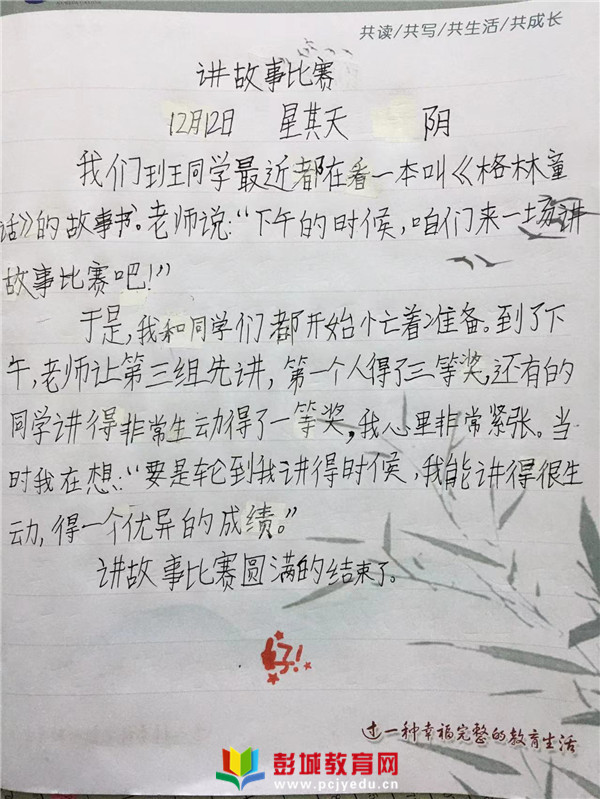 共读/共写/共生活/共成长
讲故事比赛
12月12日 星其天 阴
我们班同学最近都在看一本叫《格林童
话》的故事书。老师说:“下午的时候,咱们来一场讲
故事比赛吧!”
于是,我和同学们都开始忙着准备。到了下
午,老师让第三组先讲,第一个人得了三等奖,还有的
同学讲得非常生动得了一等奖,我心里非常紧张。当
时我在想:“要是轮到我讲得时候,我能讲得很生
动,得一个优异的成绩。”
讲故事比赛圆满的结束了。
好!
过一种幸福完整的教育生活
彭城教育网
www.pcjyedu.cn